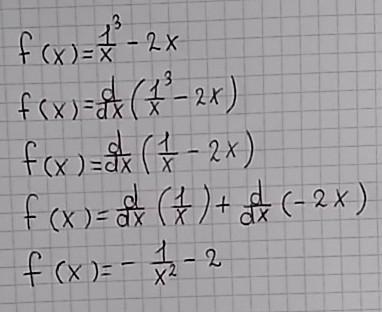 f(x)=1³/x - 2x
f(x)=d/dx(1³/x - 2x)
f(x)=d/dx(1/x - 2x)
f(x)=d/dx(1/x)+d/dx(-2x)
f(x)=-1/x²-2